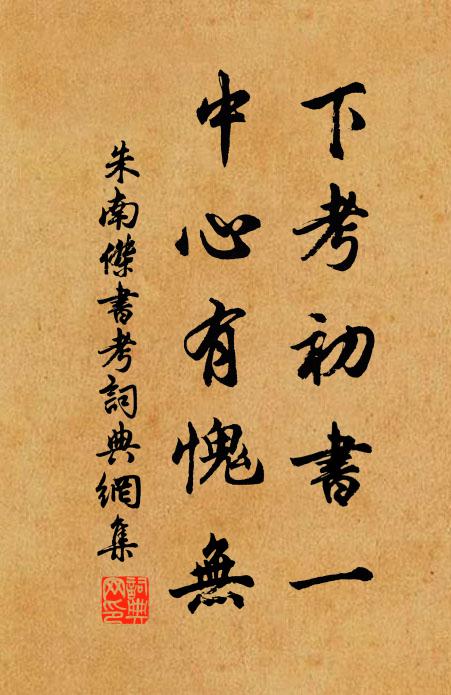 下考初書一
中心有愧無
朱南傑書考詞典網集
詞典網印